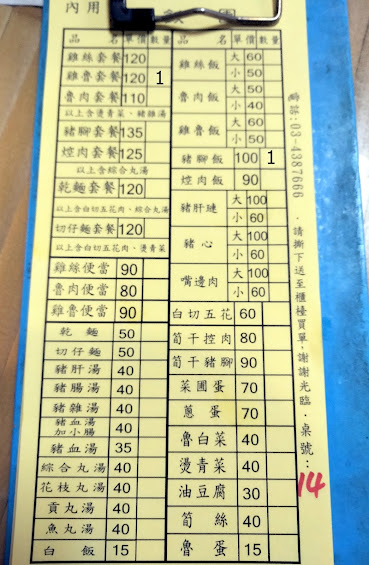 內用
品 名 單價 數量
雞絲套餐 120
雞魯套餐 120 1
魯肉套餐 110
以上含燙青菜、豬雜湯
豬腳套餐 135
焢肉套餐 125
以上含綜合丸湯
乾麵套餐 120
以上含白切五花肉、綜合丸湯
切仔麵套餐 120
以上含白切五花肉、燙青菜
雞絲便當 90
魯肉便當 80
雞魯便當 90
乾麵 50
切仔麵 50
豬肝湯 40
豬腸湯 40
豬雜湯 40
豬血湯加小腸 40
豬血湯 35
綜合丸湯 40
花枝丸湯 40
貢丸湯 40
魚丸湯 40
白飯 15
品 名 單價 數量
雞絲飯 大 60
小 50
魯肉飯 大 50
小 40
雞魯飯 大 60
小 50
豬腳飯 100 1
焢肉飯 90
豬肝瞇 大 100
小 60
豬心 大 100
小 60
嘴邊肉 大 100
小 60
白切五花 60
筍干焢肉 80
筍干豬腳 90
菜圃蛋 70
蔥蛋 70
魯白菜 40
燙青菜 40
油豆腐 30
筍絲 40
魯蛋 15
電話:03-4387666 ‧請撕下送至櫃檯買單,謝謝光臨‧桌號:
14